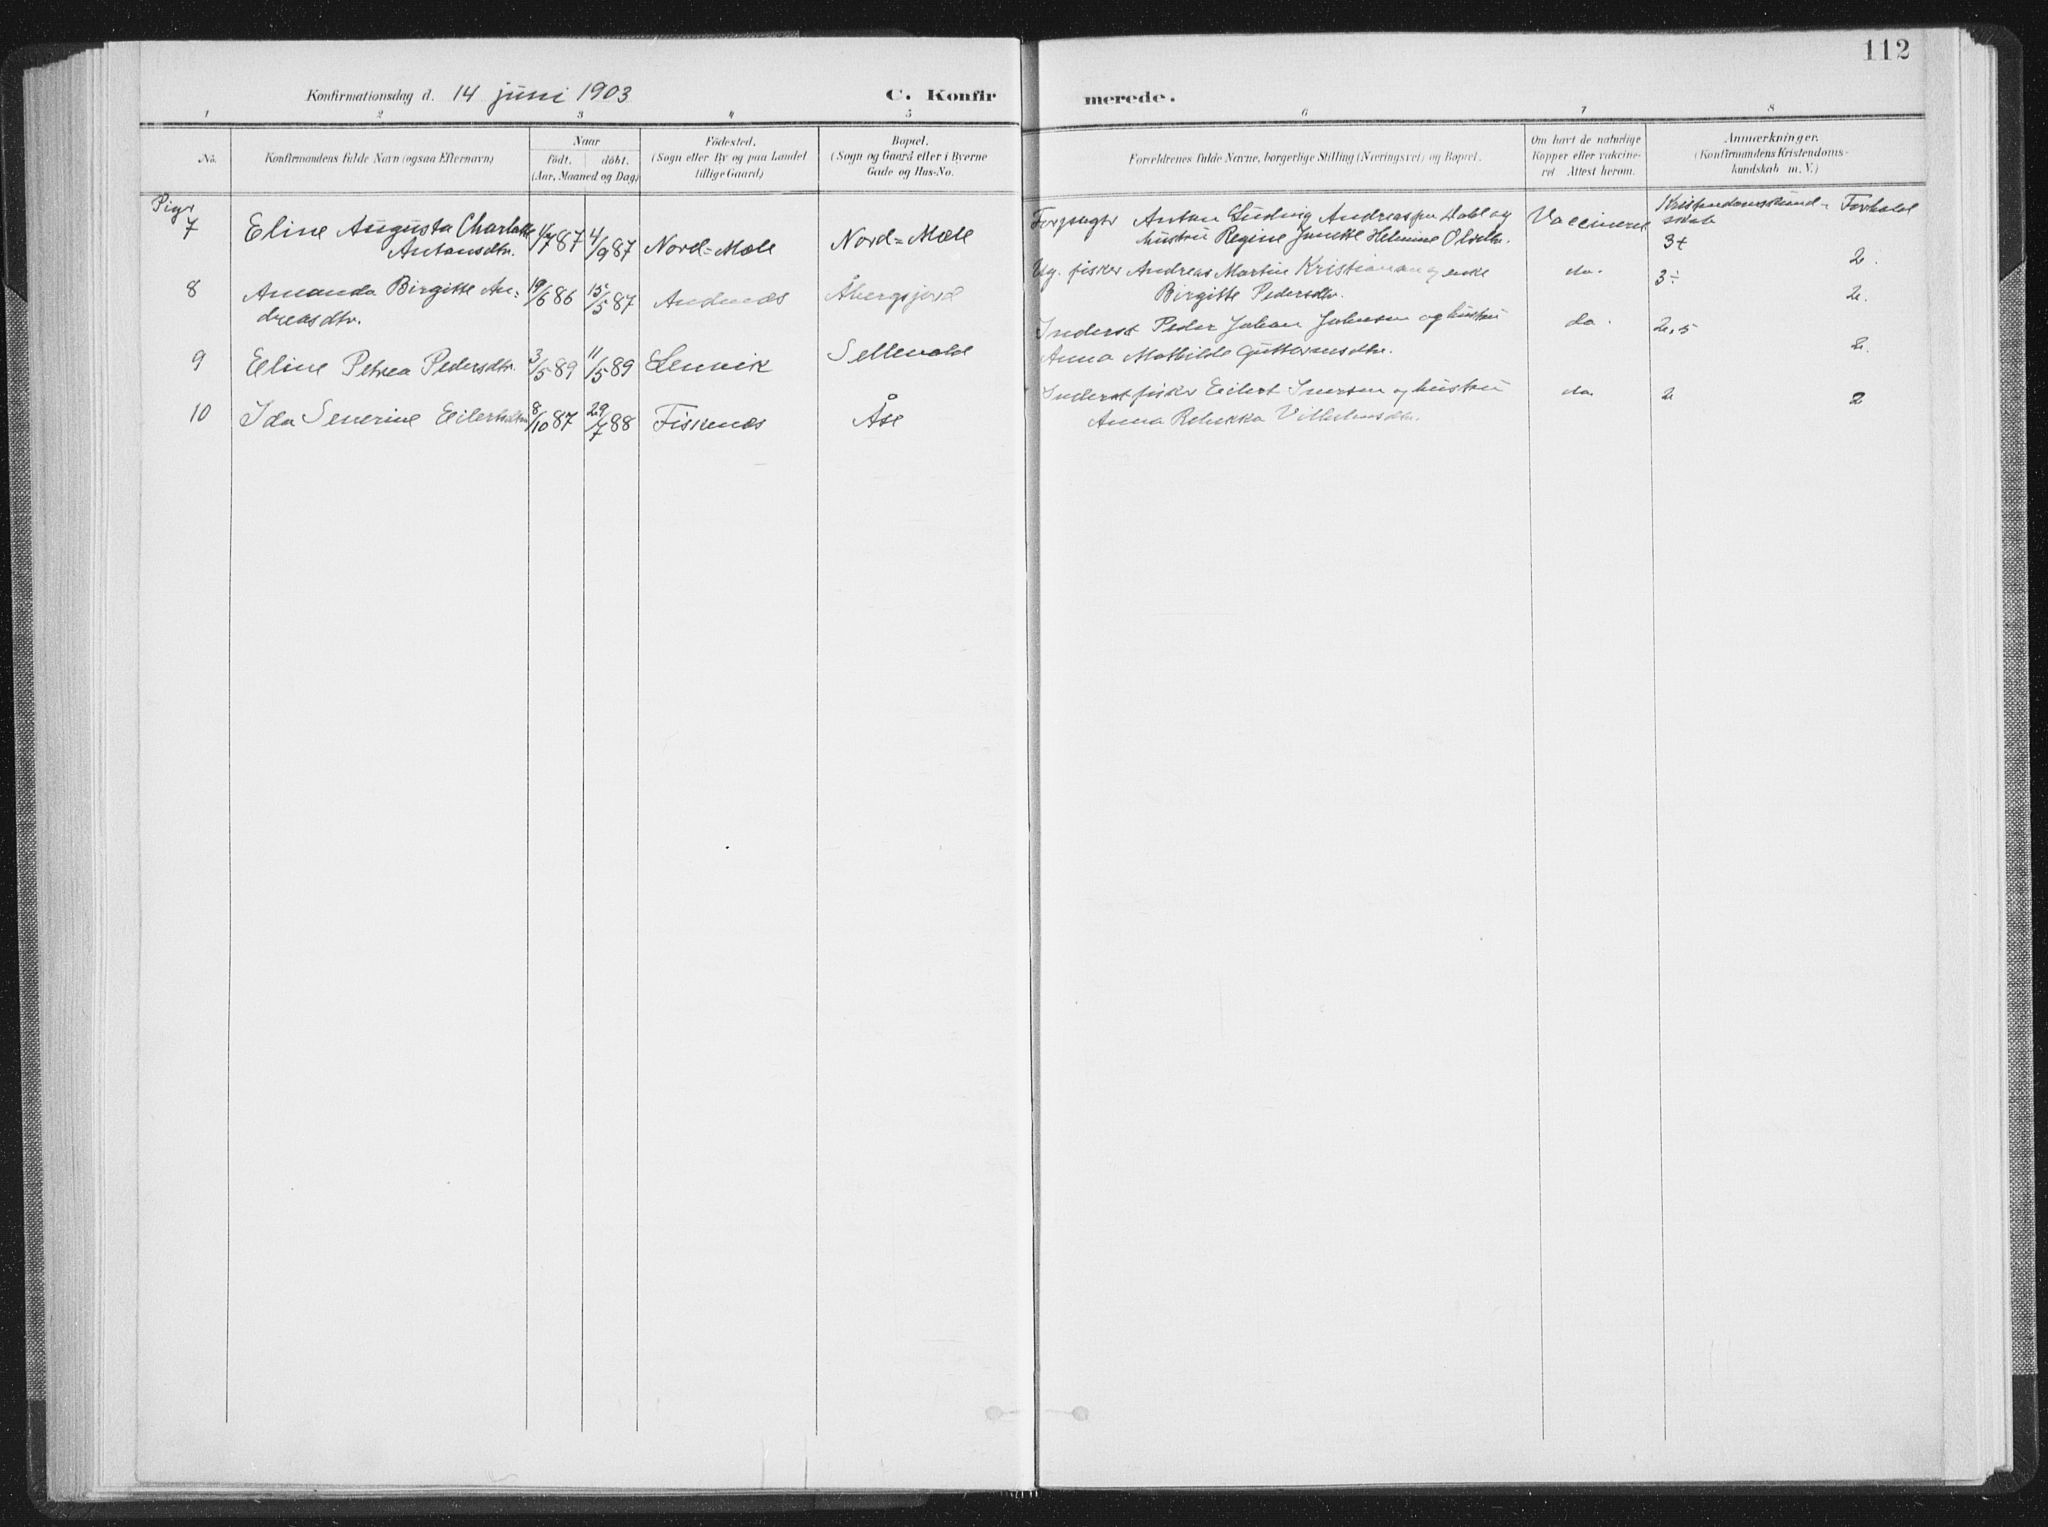 112
Konfirmationsdag d. 14 juni 1903
C. Konfirmerede.
1 2 3 4 5 6 7 8
No.
Konfirmandens fulde Navn (ogsaa Efternavn)
Naar
födt. döbt.
(Aar, Maaned og Dag)
Födested.
(Sogn eller By og paa Landet
tillige Gaard)
Bopæl.
(Sogn og Gaard eller i Byerne
Gade og Hus-No.
Forældrenes fulde Navne, borgerlige Stilling (Næringsvei) og Bopæl.
Om havt de naturlige
Kopper eller vakcine-
ret Attest herom.
Anmærkninger.
(Konfirmandens Kristendoms-
kundskab m. V.)
Piger
Kristendomskund- Forhold
skab
7 Eline Augusta Charlotte 1/7 87 4/9 87 Nord-Mæle Nord-Mæle Anton Ludvig Andreassen Dahl og Vaccineret 3+ 2.
Antonsdtr. hustru Regine Helmine Olsdtr.
8 Amanda Birgitte An- 19/6 86 15/5 87 Andenæs Åbergsjord Ug. fisker Andreas Martin Kristiansen og enke do. 3÷ 2.
dreasdtr. Birgitte Pedersdtr.
9 Eline Petrea Pedersdtr. 3/5 89 11/5 89 Lenvik Sellevold Inderst Peder Johan Johnsen og hustru do. 2,5 2.
Anna Mathilde Guttormsdtr.
10 Ida Severine Eilertsdtr. 8/10 87 29/7 88 Fiskenæs Åse Inderst fisker Eilert Iversen og hustru do. 2 2
Anna Rebekka Vilhelmsdtr.